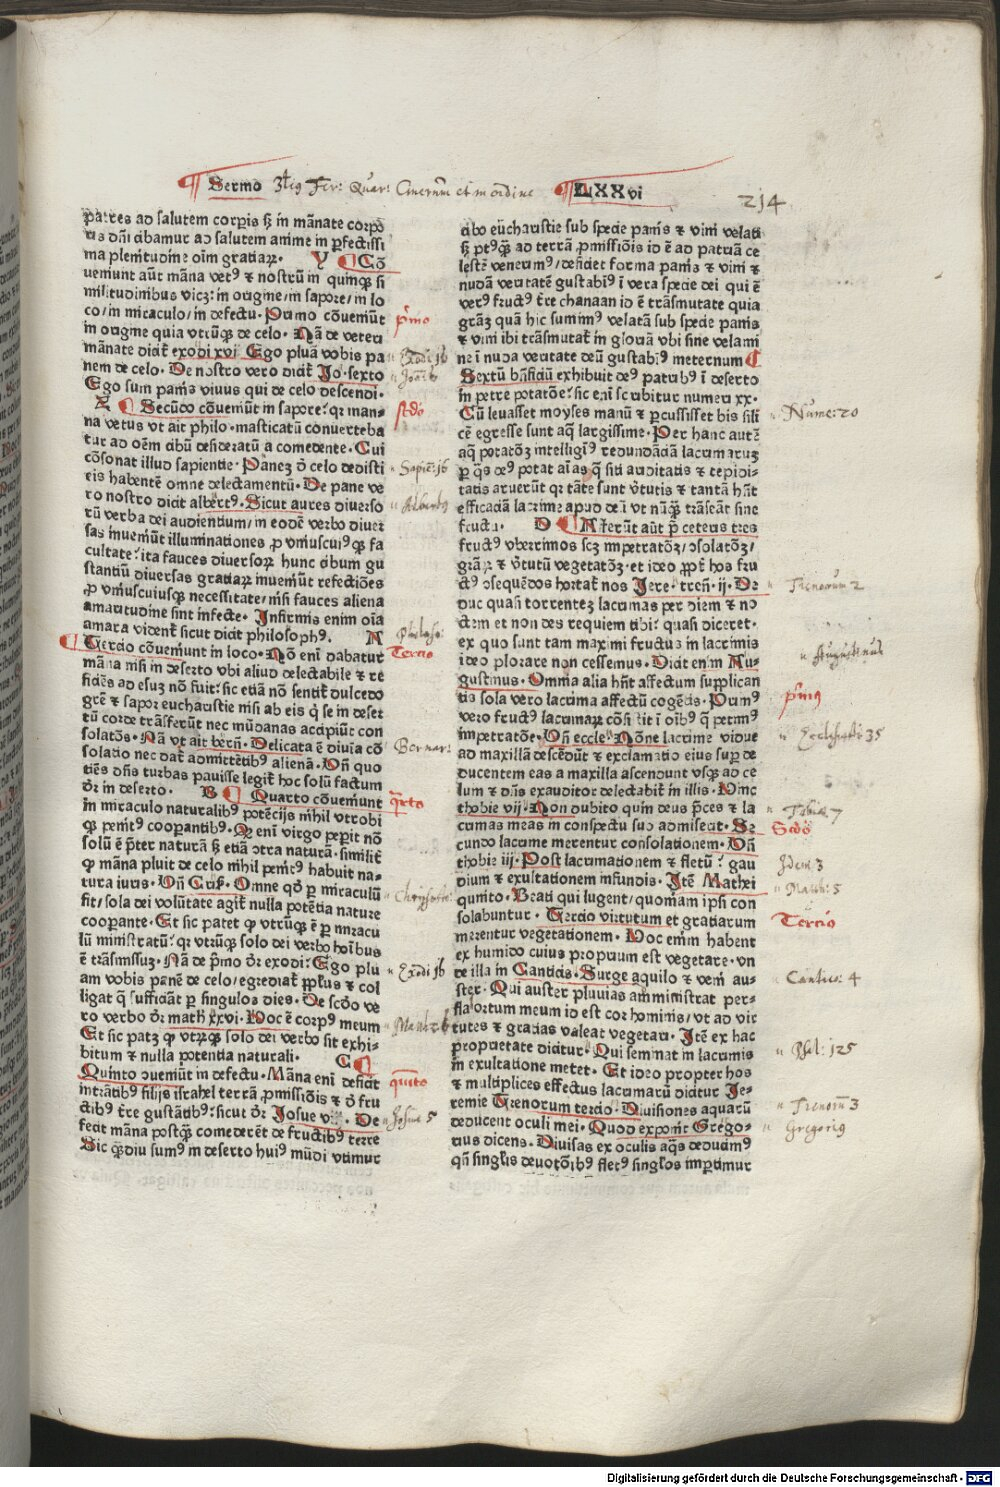 Sermo 3ti9 Fer: Quar: Cinerum et in ordine LXXvi
214
patres ad salutem corꝑis sꝫ in mãnate corpo
ris dñi cibamur ad salutem anime in ꝑfectissi
ma plenitudine oĩm gratiaꝝ. Y Cõ
ueniunt aũt mãna vetꝰ ⁊ nostrũ in quinqꝫ si
militudinibus vicꝫ in origine/in sapore/in lo
co/in miraculo/in defectu. Primo cõueniũt
in origine quia vtrũqꝫ de celo. Nã de veteri
mãnate dicit̃ exodi xvi. Ego pluã vobis pa
nem de celo. De nostro vero dicit̃ Jo. sexto
Ego sum panis viuus qui de celo descendi.
Z Secũdo cõueniũt in sapore: qꝛ man-
na vetus vt ait philo. masticatũ conuerteba
tur ad oẽm cibũ desideratũ a comedente. Cui
cõsonat illud sapientie. Panez ð celo dedisti
eis habentẽ omne delectamentũ. De pane ve
ro nostro dicit albertꝰ. Sicut aures diuerso
rũ verba dei audientium/in eodẽ verbo diuer
sas inueniũt illuminationes ꝓ vniuscuiꝰqꝫ fa
cultate: ita fauces diuersoꝝ hunc cibum gu
stantiũ diuersas gratiaꝝ inueniũt refectiões
ꝓ vniuscuiusqꝫ necessitate/nisi fauces aliena
amaritudine sint infecte. Infirmis enim oĩa
amara vident̃ sicut dicit philosophꝰ. A
Tercio cõueniunt in loco. Nõ enĩ dabatur
mãna nisi in deserto vbi aliud delectabile ⁊ re
ficiẽs ad esuꝫ nõ fuit: sic etiã nõ sentit̃ dulcedo
grẽ ⁊ sapor euchaꝛistie nisi ab eis q̃ se in deser
tũ corde trãsferũt nec mũdanas accipiũt con
solatões. Nã vt ait berñ. Delicata ẽ diuia cõ
solatio nec dat̃ admittẽtibꝰ alienã. Uñ quo
tiẽs dñs turbas pauisse legit̃ hoc solũ factum
ðr in deserto. B Quarto cõueniunt
in miraculo naturalibꝰ potẽcijs nihil vtrobi
qꝫ penitꝰ coopantibꝰ. Qꝛ enĩ virgo peperit nõ
solũ ẽ p̃ter naturã sꝫ etiã ↄtra naturã. similit̃
ꝙ mãna pluit de celo nihil penitꝰ habuit na-
tura iuris. Uñ Crisꝰ. Omne qð ꝑ miraculũ
fit/sola dei volũtate agit̃ nulla potẽtia nature
coopante. Et sic patet ꝙ vtrũqꝫ ẽ ꝑ miracu
lũ ministratũ: qꝛ vtrũqꝫ solo dei verbo hoĩbus
ẽ trãsmissuꝫ. Nã de p̃mo ðr exodi: Ego plu
am vobis panẽ de celo/egrediat̃ pp̃lus ⁊ col
ligat q̃ sufficiãt ꝑ singulos dies. De scðo ve
ro verbo ðr math xxvi. Hoc ẽ corpꝰ meum
Et sic patꝫ ꝙ vtrũqꝫ solo dei verbo sit exhi-
bitum ⁊ nulla potentia naturali. C
Quinto ↄueniũt in defectu. Mãna enĩ deficit
intrãtibꝰ filijs israhel terrã ꝓmissiõis ⁊ ð fru
ctibꝰ tr̃e gustãtibꝰ: sicut ðr Josue v. De
fecit mãna postq̃ꝫ comederẽt de fructibꝰ terre
Sic q̃diu sumꝰ in deserto huiꝰ mũdi vtimur
p̃mo
Exodi 16
Joan: 6
scðo
Sapie: 16
Albertꝰ
Philoso:
Tercio
Bernar:
q̃rto
Chrysosto:
Exodi 16
Matth: 26
quinto
Josue 5
cibo euchaꝛistie sub specie panis ⁊ vini velati
sꝫ ptꝰq̃ꝫ ad terrã ꝓmissiõis id ẽ ad patriã ce
lestẽ veneriꝰ/deficiet forma panis ⁊ vini ⁊
nudã veritatẽ gustabiꝰ ĩ vera specie dei qui ẽ
verꝰ fructꝰ tr̃e chanaan id ẽ trãsmutate quia
grãꝫ quã hic sumimꝰ velatã sub specie panis
⁊ vini ibi trãsmutat̃ in gloriã vbi sine velami
ne ĩ nuda veritate deũ gustabiꝰ ineternum
Sextũ bñficiũ exhibuit deꝰ patribꝰ ĩ deserto
in petre potatõe: sic enĩ scribitur numeri xx.
Cũ leuasset moyses manũ ⁊ ꝑcussisset bis sili
cẽ egresse sunt aq̃ largissime. Per hanc autẽ
aq̃ potatõꝫ intelligiꝰ redundãciã lacrimaruꝫ
ꝑ q̃s deꝰ potat aĩas q̃ siti ariditatis ⁊ tepidi-
tatis aruerũt qꝛ tãte sunt ꝟtutis ⁊ tantã hñt
efficaciã lacrime apud deũ vt nũq̃ꝫ trãseãt sine
fructu. D Afferũt aũt p̃ ceteris tres
fructꝰ vberrimos scꝫ impetratõꝫ/ↄsolatõꝫ/
gr̃aꝝ ⁊ ꝟtutũ vegetatõꝫ. et ideo ꝓpt̃ hos fru
ctꝰ ↄsequẽdos hortat̃ nos Jere. treñ. ij. De
duc quasi torrentez lacrimas per diem ⁊ no
ctem et non des requiem tibi: quasi diceret.
ex quo sunt tam maximi fructus in lacrimis
ideo plorare non cessemus. Dicit enim Au-
gustinus. Omnia alia hñt affectum supplican
tis sola vero lacrima affectũ cogẽdi. Primꝰ
vero fructꝰ lacrimaꝝ cõsistit ĩ oĩbꝰ q̃ petimꝰ
impetratõe. Uñ eccle. Nõne lacrime vidue
ad maxillã descẽdũt ⁊ exclamatio eius suꝑ de
ducentem eas a maxilla ascendunt vsqꝫ ad ce
lum ⁊ dñs exauditor delectabit̃ in illis. Hinc
thobie vij. Non dubito quin deus p̃ces ⁊ la
crimas meas in conspectu suo admiserit. Se
cundo lacrime merentur consolationem. Uñ
thobie iij. Post lacrimationem ⁊ fletũ: gau
dium ⁊ exultationem infundis. Itẽ Mathei
quinto. Beati qui lugent/quoniam ipsi con
solabuntur. Tercio virtutum et gratiarum
merentur vegetationem. Hoc enim habent
ex humido cuius proprium est vegetare. vn
de illa in Canticis. Surge aquilo ⁊ veni au-
ster. Qui auster pluuias amministrat per-
fla/ortum meum id est cor hominis/vt ad vir
tutes ⁊ gratias valeat vegetari. Itẽ ex hac
proprietate dicitur. Qui seminat in lacrimis
in exultatione metet. Et ideo propter hos
⁊ multiplices effectus lacrimarũ dicitur Je-
remie Trenorum tercio. Diuisiones aquarũ
deducent oculi mei. Quod exponit̃ Grego-
rius dicens. Diuisas ex oculis aq̃s deducimꝰ
qñ singl̃is deuotõibꝰ fletꝰ singl̃os impartimur
Nume: 20
Trenorum 2
Augustinus
p̃mꝰ
Ecclesiasti 35
Tobiæ 7
Scðo
Idem 3
Matth: 5
Tercio
Cantico: 4
Psal: 125
Trenorũ 3
Gregoriꝰ
Digitalisierung gefördert durch die Deutsche Forschungsgemeinschaft - DFG